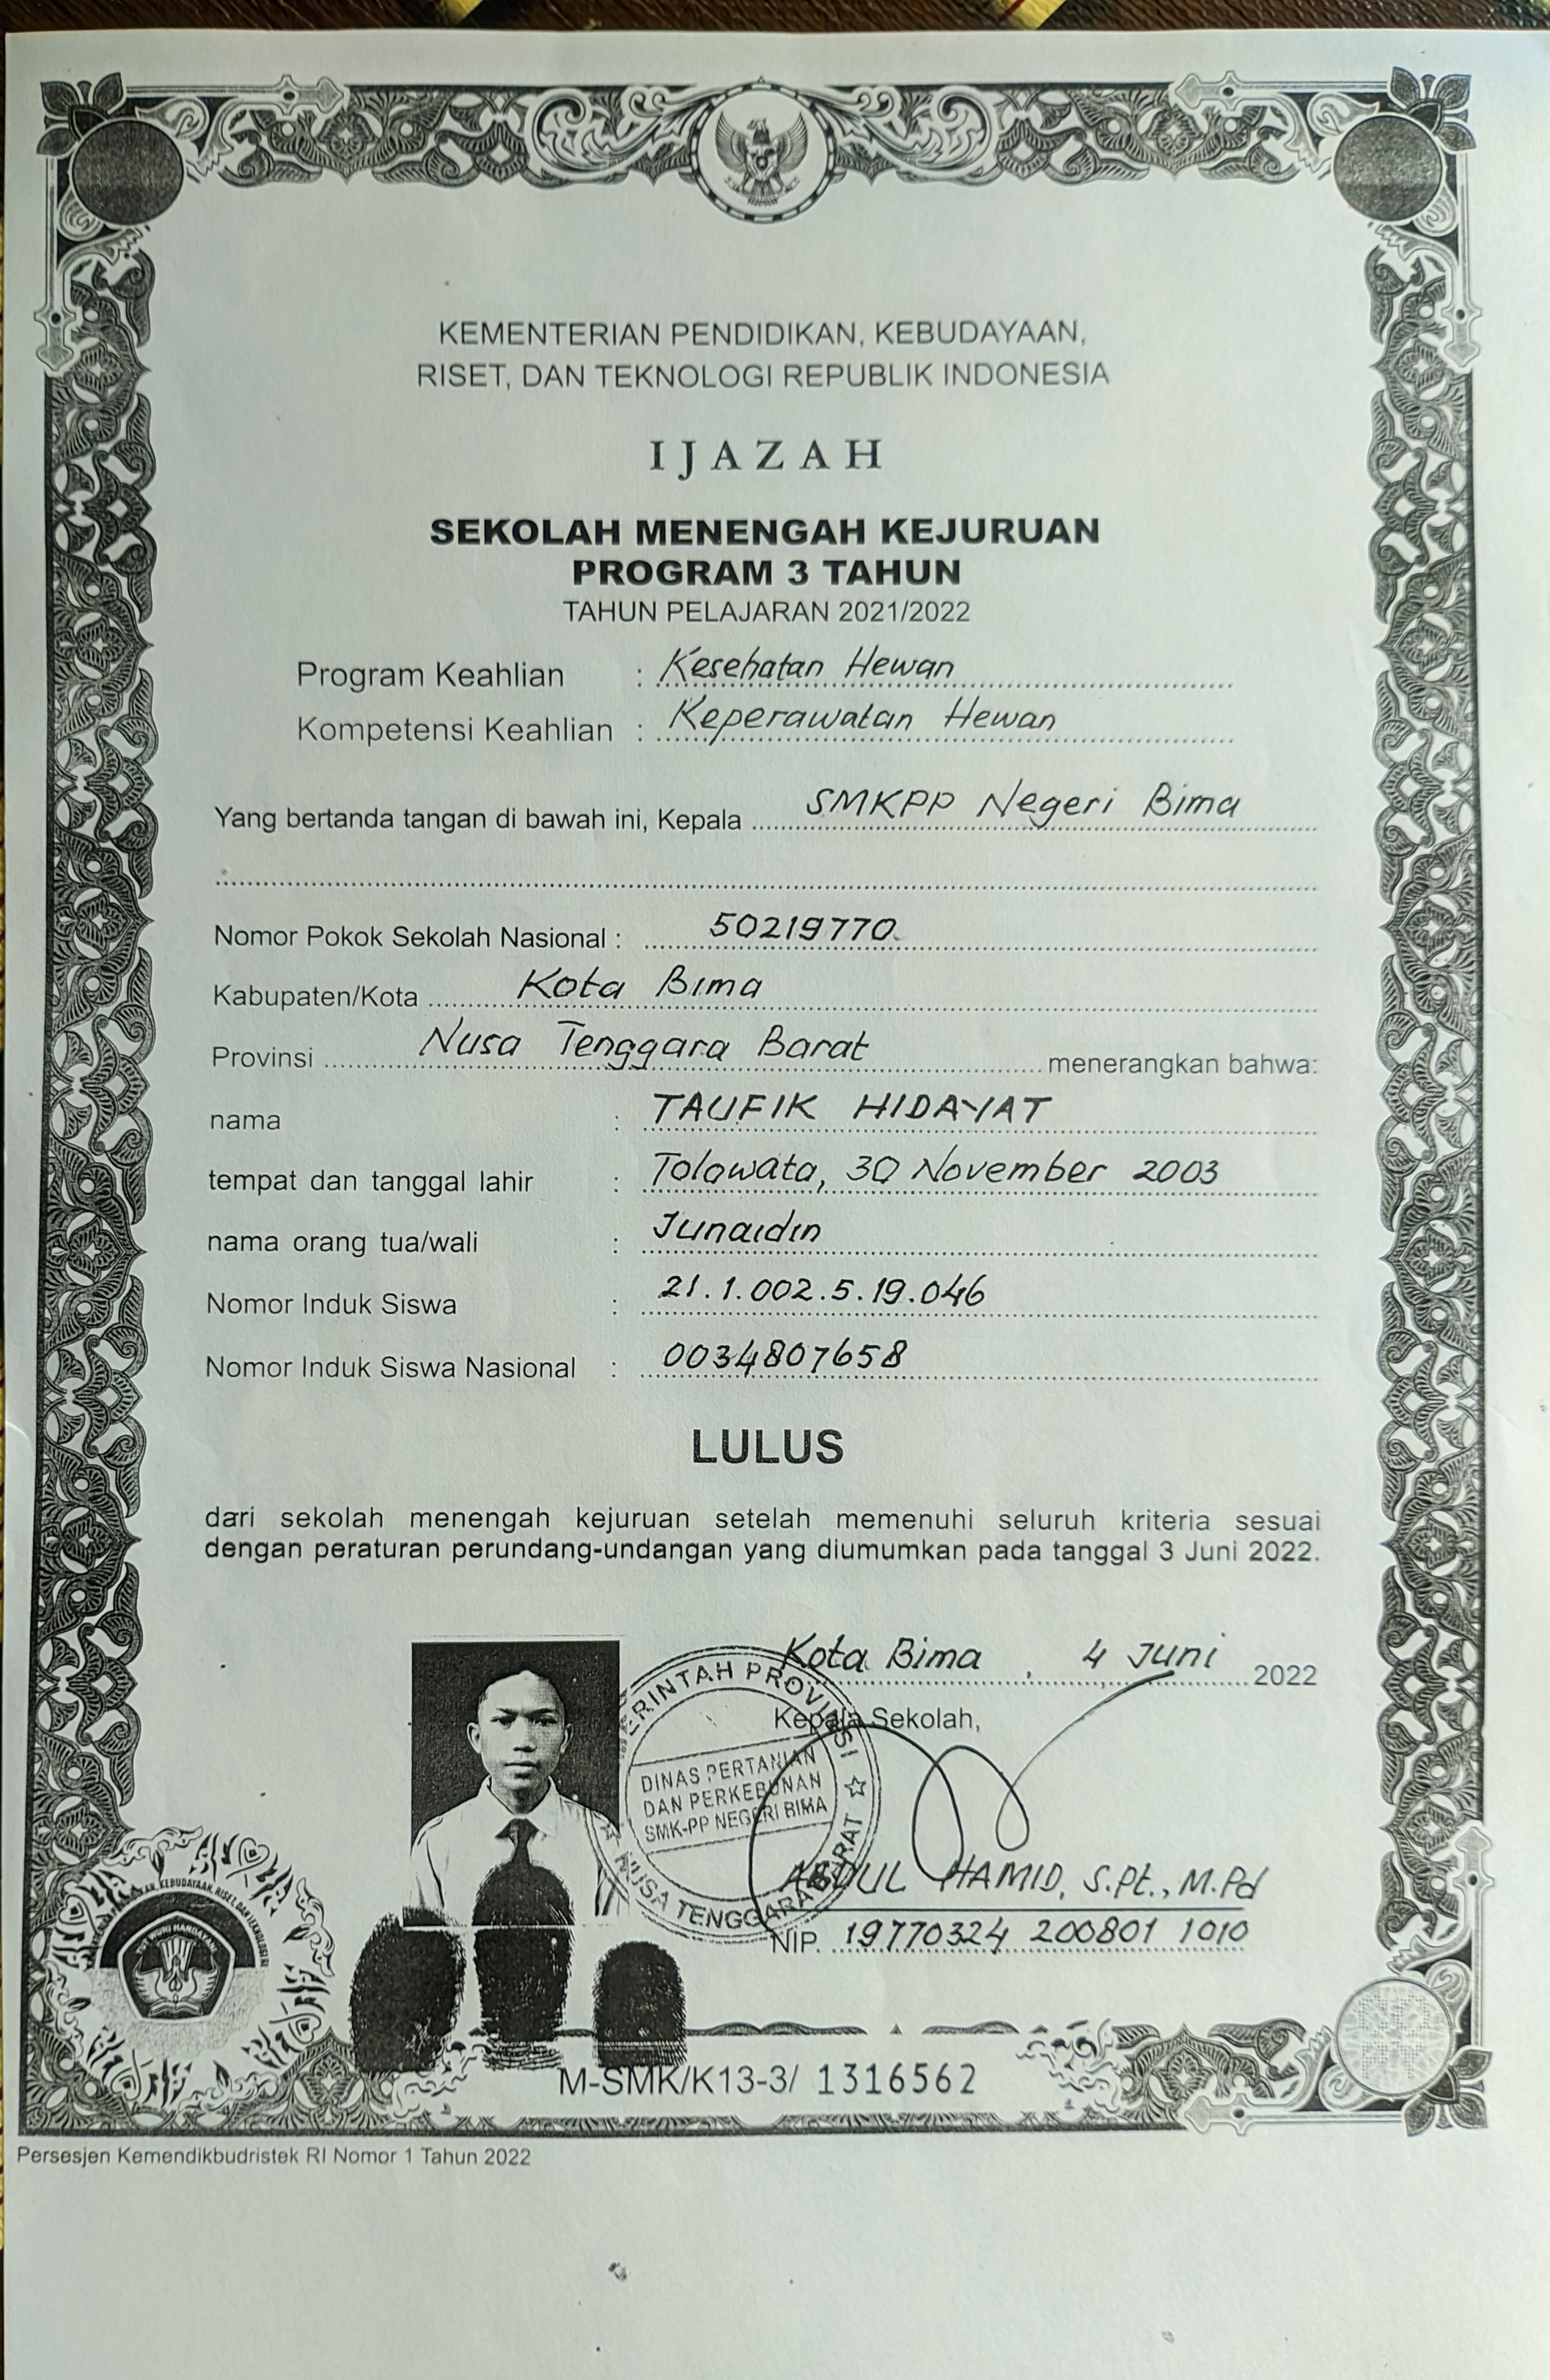 KEMENTERIAN PENDIDIKAN, KEBUDAYAAN,
RISET, DAN TEKNOLOGI REPUBLIK INDONESIA
IJAZAH
SEKOLAH MENENGAH KEJURUAN
PROGRAM 3 TAHUN
TAHUN PELAJARAN 2021/2022
Program Keahlian : Kesehatan Hewan
Kompetensi Keahlian : Keperawatan Hewan
Yang bertanda tangan di bawah ini, Kepala SMKPP Negeri Bima
Nomor Pokok Sekolah Nasional : 50219770
Kabupaten/Kota Kota Bima
Provinsi Nusa Tenggara Barat menerangkan bahwa:
nama : TAUFIK HIDAYAT
tempat dan tanggal lahir : Tolowata, 30 November 2003
nama orang tua/wali : Junaidin
Nomor Induk Siswa : 21.1.002.5.19.046
Nomor Induk Siswa Nasional : 0034807658
LULUS
dari sekolah menengah kejuruan setelah memenuhi seluruh kriteria sesuai
dengan peraturan perundang-undangan yang diumumkan pada tanggal 3 Juni 2022.
Kota Bima, 4 Juni 2022
Kepala Sekolah,
PROVINSI
DINAS PERTANIAN
DAN PERKEBUNAN
SMK-PP NEGERI BIMA
NUSA TENGGARA BARAT
ABDUL HAMID, S.Pt., M.Pd
NIP. 19770324 200801 1010
M-SMK/K13-3/ 1316562
Persesjen Kemendikbudristek RI Nomor 1 Tahun 2022